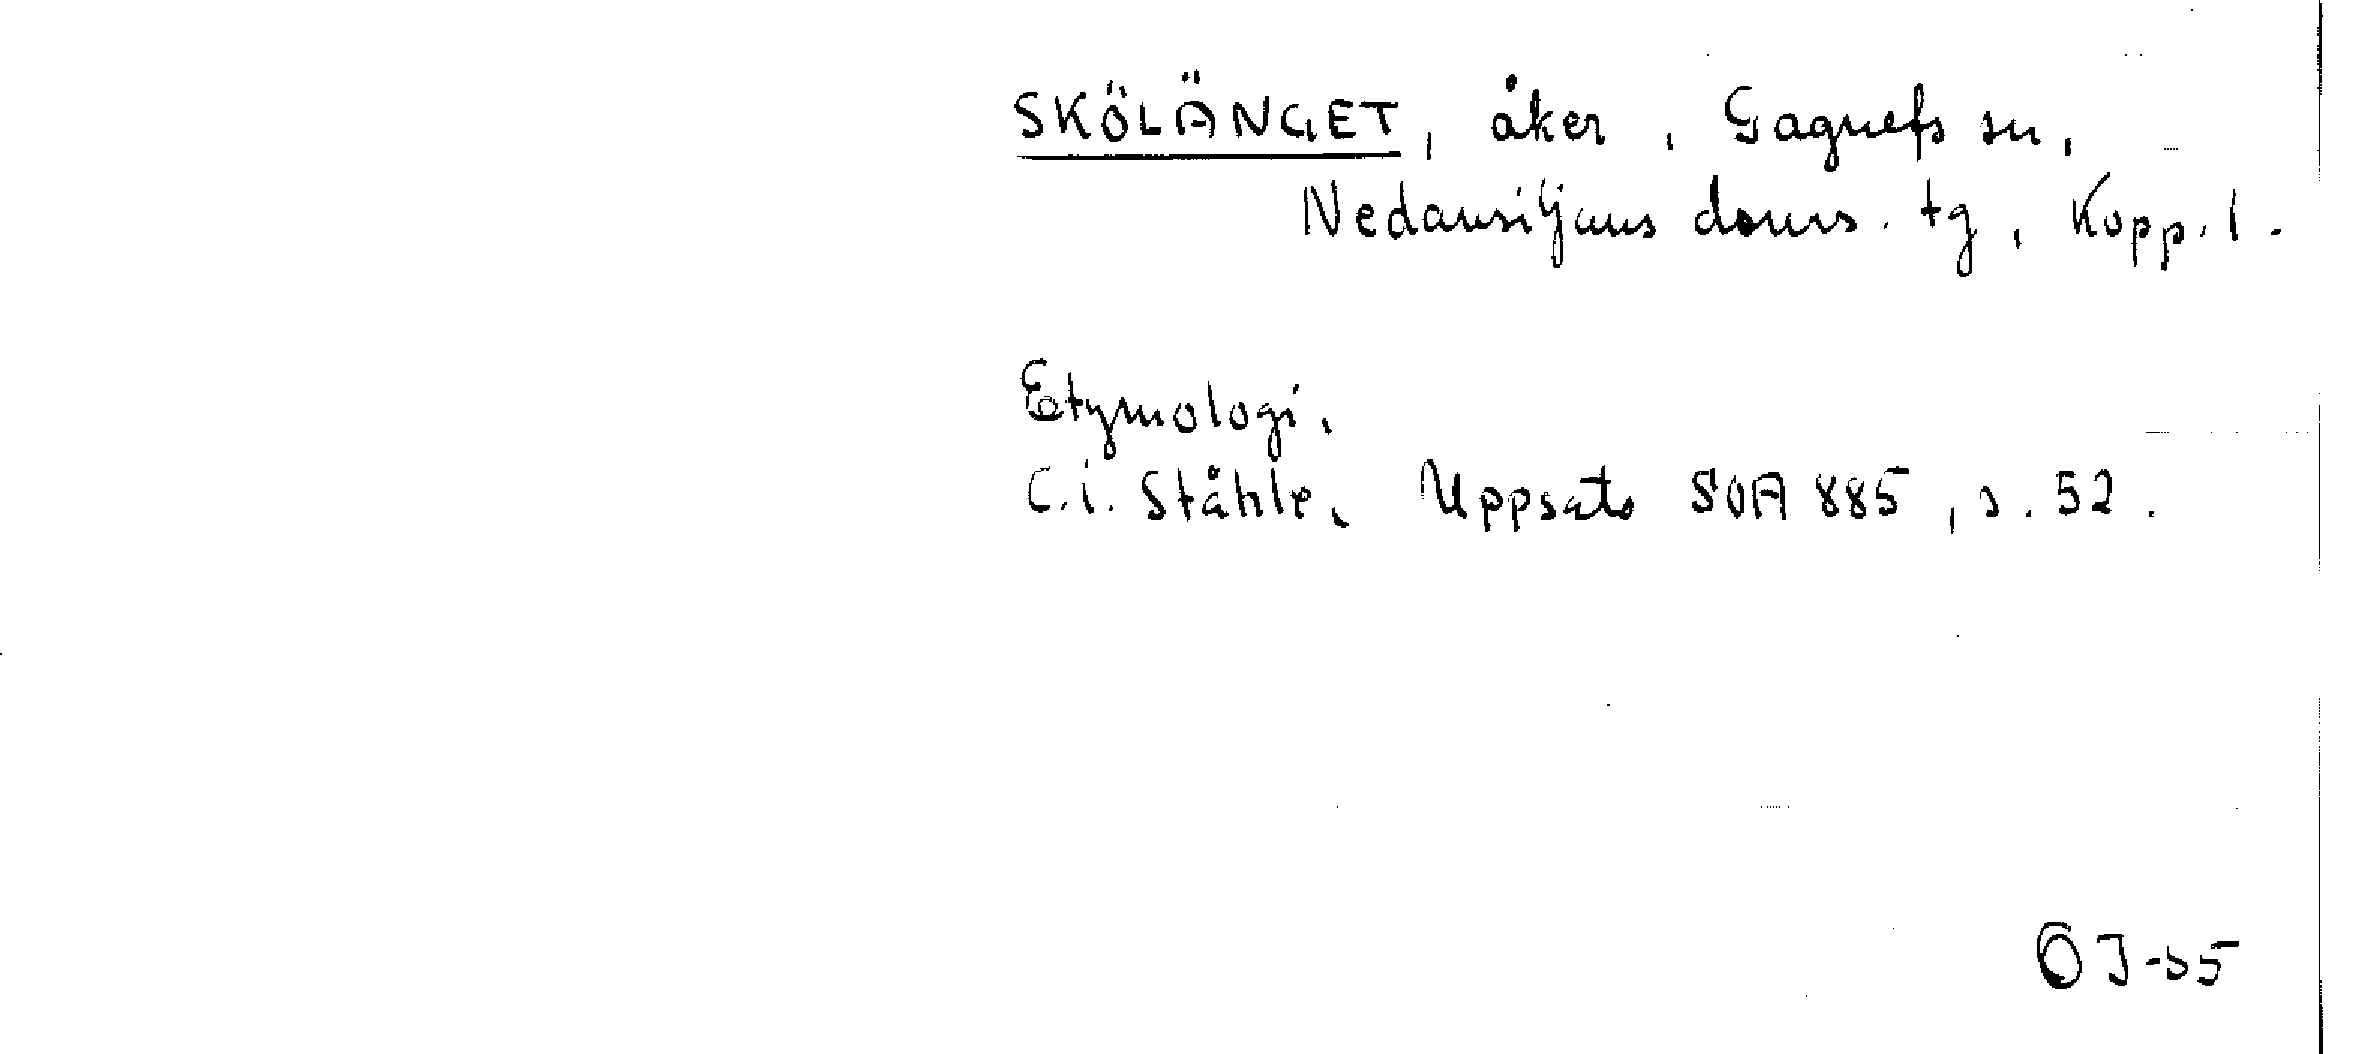 SKÖLÄNGET, åker, Gagnefs sn,
Nedansiljans doms. tg, Kopp. l.
Etymologi.
C.I. Ståhle, Uppsats SOA 885, s. 52.
OJ-55